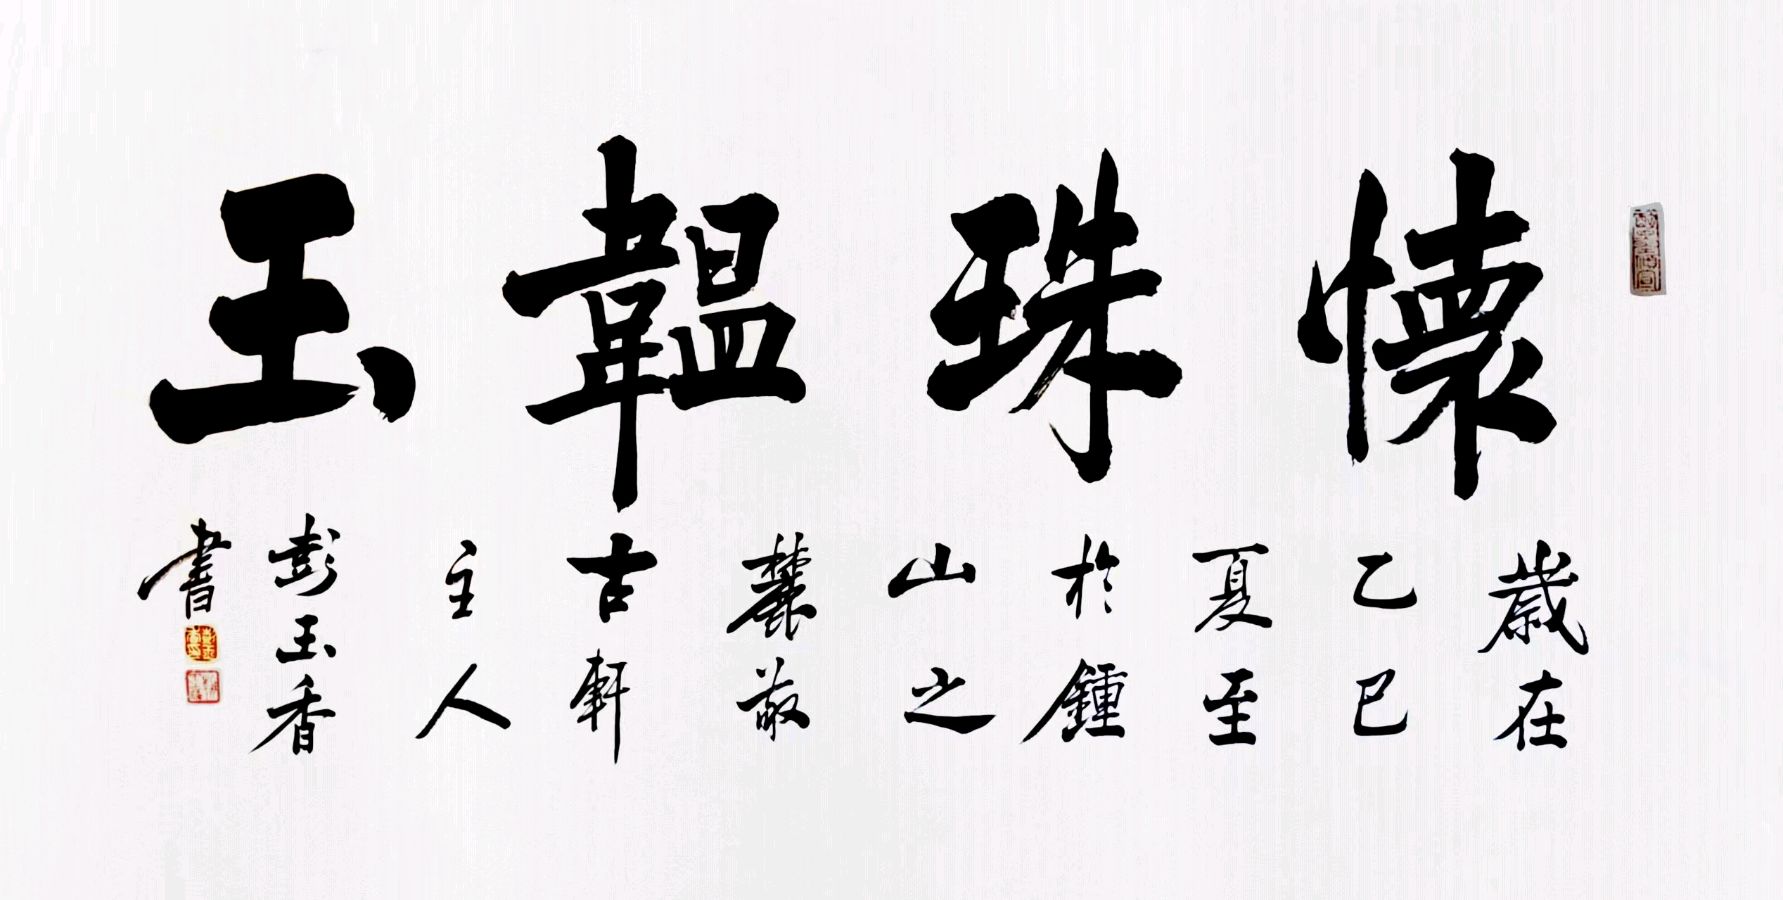 懷珠韞玉
歲在
乙巳
夏至
於鍾
山之
麓敬
古軒
主人
彭玉香
書